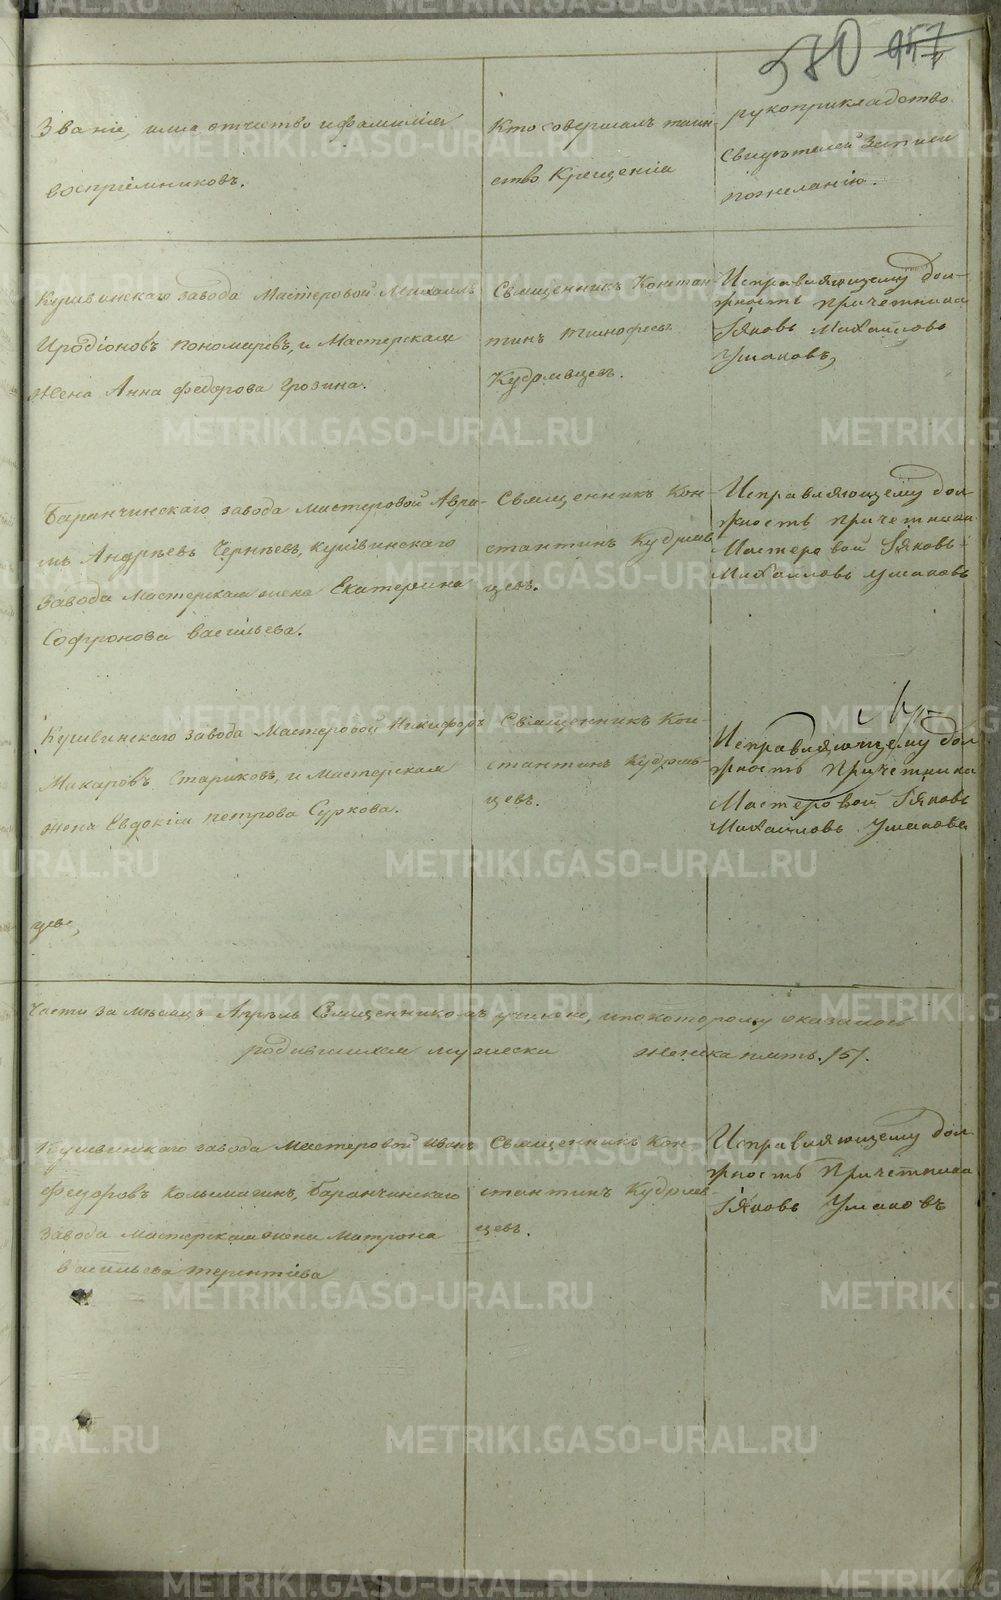 580 957
Званіе, имя отчество и фамилія
воспріемниковъ.
Кто совершалъ таин-
ство Крещенія
рукоприкладство
свидѣтелей записи
по желанію.
Кушвинскаго завода Мастеровой Михаилъ
Иродіоновъ Пономаревъ, и Мастерская
жена Анна Федорова Грозина.
Священникъ Констан-
тинъ Тимофеевъ
Кудрявцевъ.
Исправляющему дол-
жность причетника
Іяковъ Михайлово
Ушаковъ,
Баранчинскаго завода мастеровой Авра-
мъ Андреевъ Чернѣевъ, Кушвинскаго
завода Мастерская жена Екатерина
Софронова Васильева.
Священникъ Кон-
стантинъ Кудряв-
цевъ.
Исправляющему дол-
жность причетника
Мастеровой Іяковъ
Михаиловъ Ушаковъ
Кушвинскаго завода Мастеровой Никифоръ
Макаровъ Стариковъ, и Мастерская
жена Евдокія Петрова Суркова.
Священникъ Кон-
стантинъ Кудряв-
цевъ.
Исправляющему дол
жность Причетника
Мастеровой Іяковъ
Михаиловъ Ушаковъ
части за мѣсяцъ Апрѣль Священникомъ учинено, и по которому оказалось
родившихся мужеска женска пять /5/.
Кушвинскаго завода Мастеровой Иванъ
Федоровъ Колымагинъ, Баранчинскаго
завода мастерская жена Матрона
Васильева Терентіева
Священникъ Кон-
стантинъ Кудряв-
цевъ.
Исправляющему дол
жность Причетника
Іяковъ Ушаковъ
METRIKI.GASO-URAL.RU